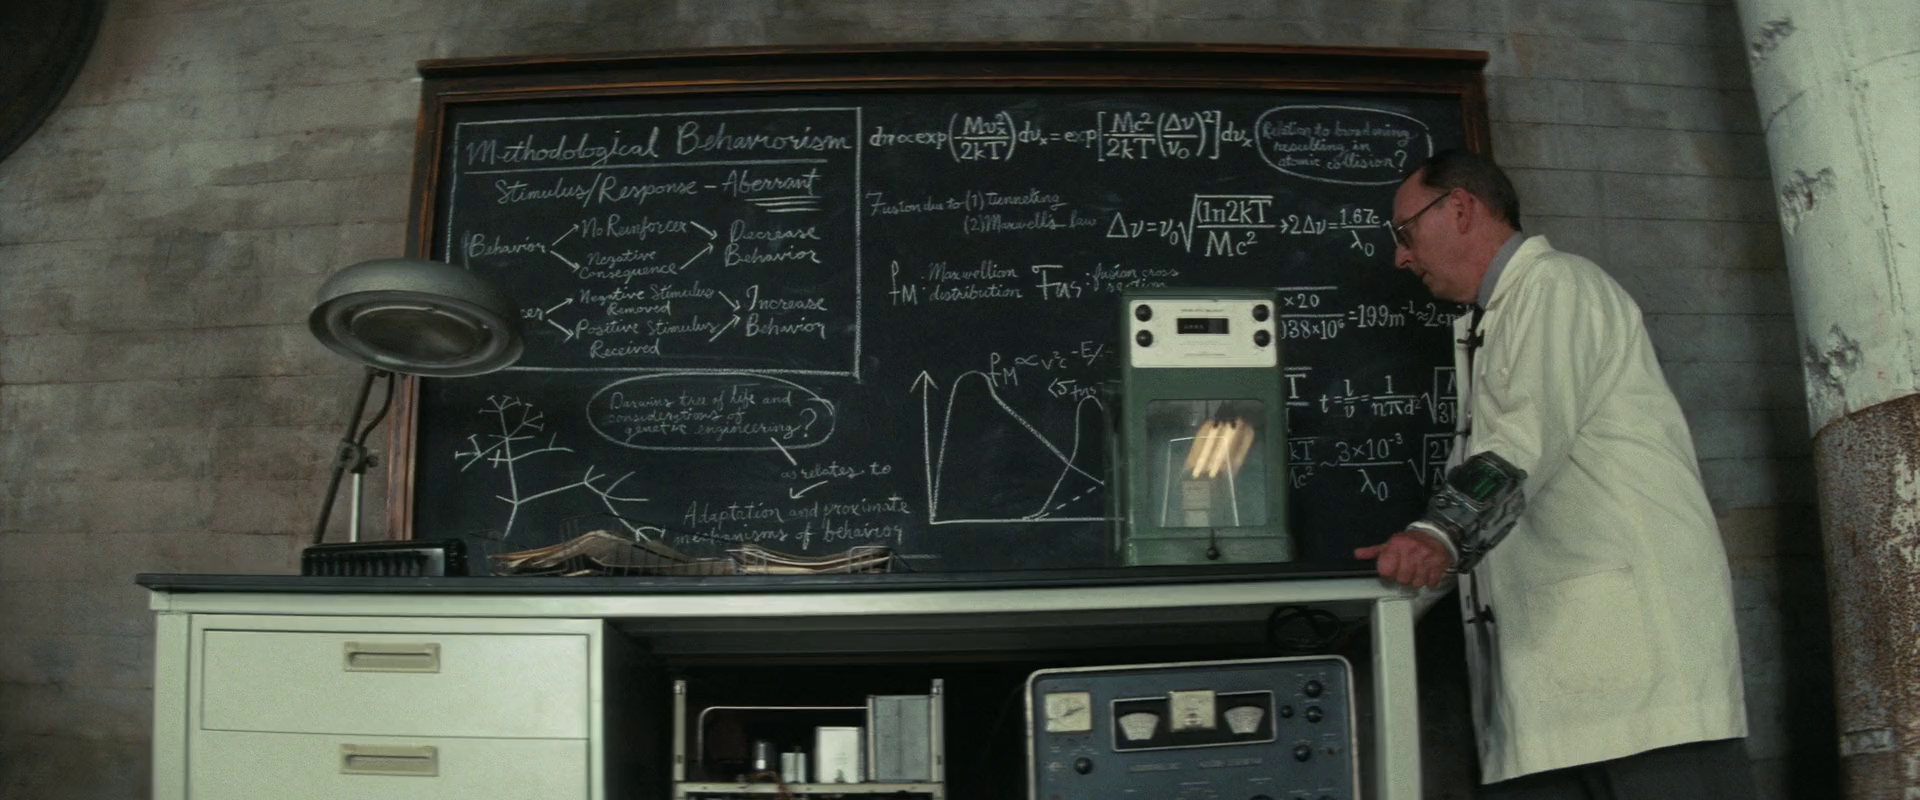 Methodological Behaviorism
Stimulus/Response - Aberrant
Behavior
No Reinforcer
Negative
Consequence
Decrease
Behavior
Negative Stimulus
Removed
Positive Stimulus
Received
Increase
Behavior
Darwins tree of life and
considerations of
genetic engineering?
as relates to
Adaptation and proximate
mechanisms of behavior
dn∝exp(Mv²ₓ/2kT)dvₓ=exp[-Mc²/2kT(Δν/ν₀)²]dvₓ
Relation to broadening
resulting in
atomic collision?
Fusion due to (1) tunneling
(2) Maxwell's law
Δν=ν₀√(ln2kT/Mc²)→2Δν=1.67c/λ₀
fM: Maxwellian
distribution
: fusion cross
section
×20
038×10⁶=199m⁻¹≈2cm
fM∝v²e-E/
t=l/v=1/nπd²√
~3×10⁻³/λ₀√